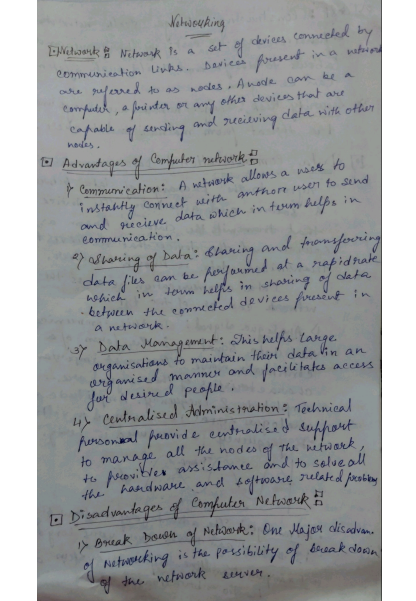 Networking
Network: Network is a set of devices connected by
communication links. Devices present in a network
are referred to as nodes. A node can be a
computer, a printer or any other devices that are
capable of sending and recieving data with other
nodes.
Advantages of Computer network:
1) Communication: A network allows a user to
instantly connect with another user to send
and recieve data which in term helps in
communication.
2) Sharing of Data: Sharing and transferring
data files can be performed at a rapid rate
which in term helps in sharing of data
between the connected devices present in
a network.
3) Data Management: This helps large
organisations to maintain their data in an
organised manner and facilitates access
for desired people.
4) Centralised Administration: Technical
personal provide centralised support
to manage all the nodes of the network,
to provides assistance and to solve all
the hardware and software related problem
Disadvantages of Computer Network
1) Break Down of Network: One Major disadvan.
of Networking is the possibility of break down
of the network server.